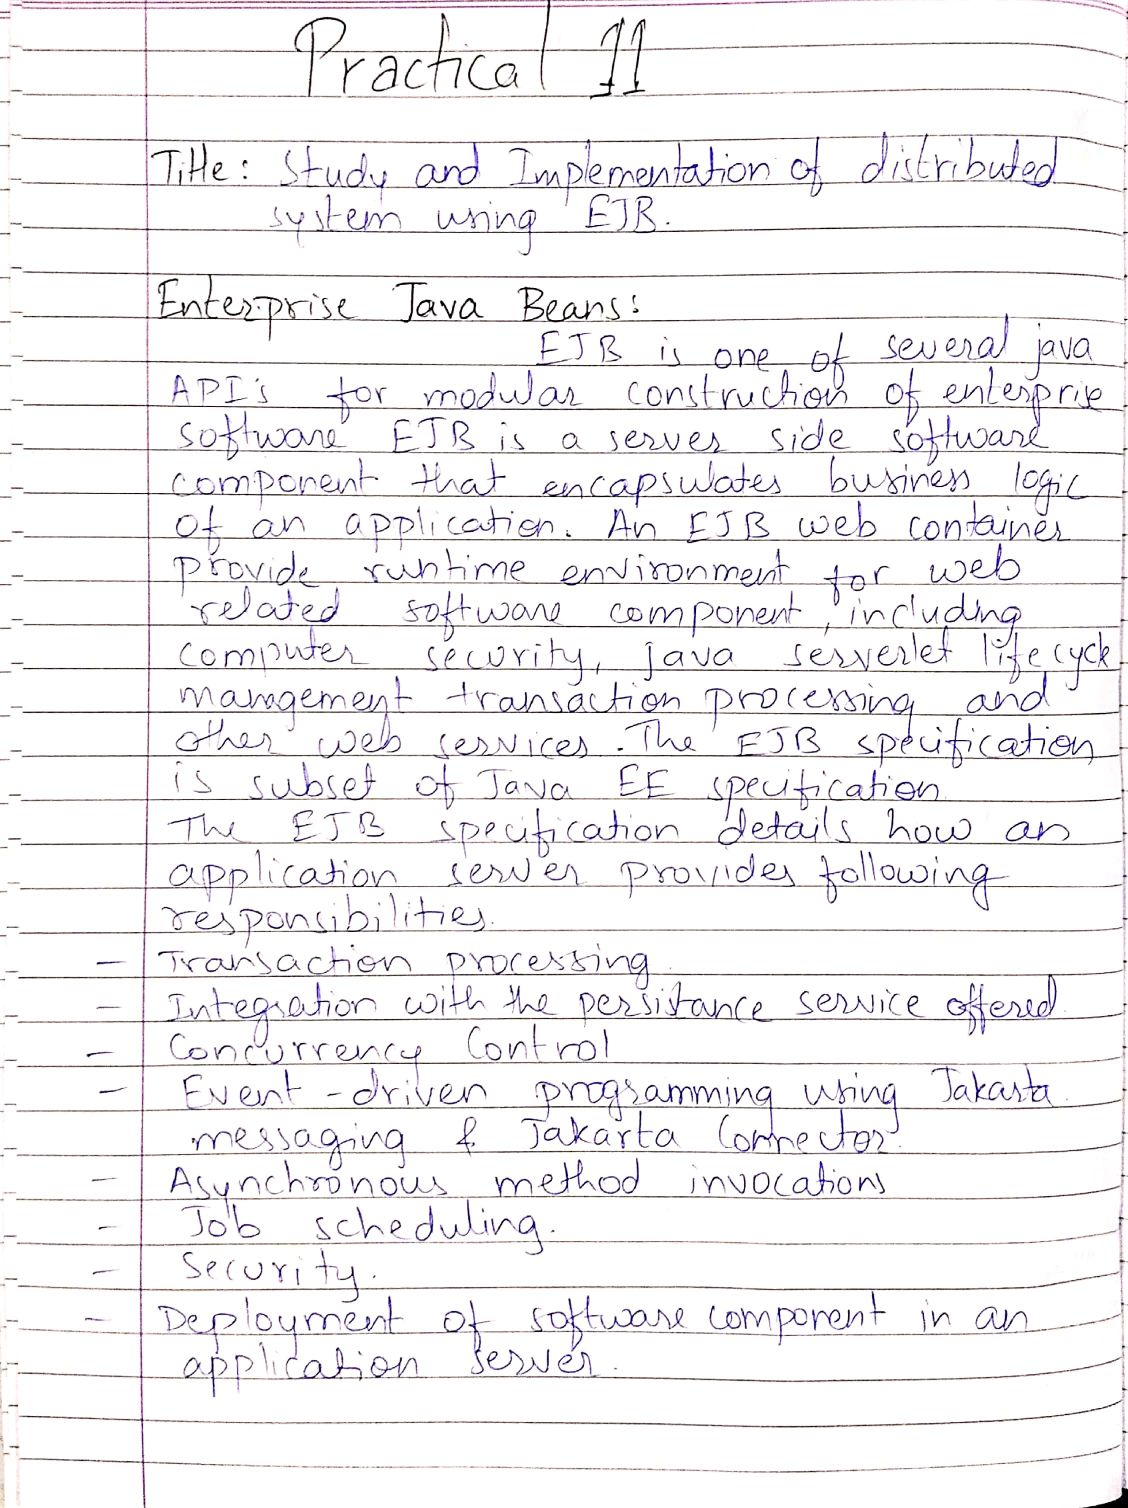 Practical 11
Title: Study and Implementation of distributed
system using EJB.
Enterprise Java Beans:
EJB is one of several java
API's for modular construction of enterprise
software EJB is a server side software
component that encapsulates business logic
of an application. An EJB web container
provide runtime environment for web
related software component, including
computer security, java serverlet lifecycle
management transaction processing and
other web services. The EJB specification
is subset of Java EE specification
The EJB specification details how an
application server provides following
responsibilities.
- Transaction processing
- Integration with the persistance service offered
- Concurrency Control
- Event-driven programming using Jakarta
messaging & Jakarta Connector.
- Asynchronous method invocations
- Job scheduling.
- Security.
- Deployment of software component in an
application server.